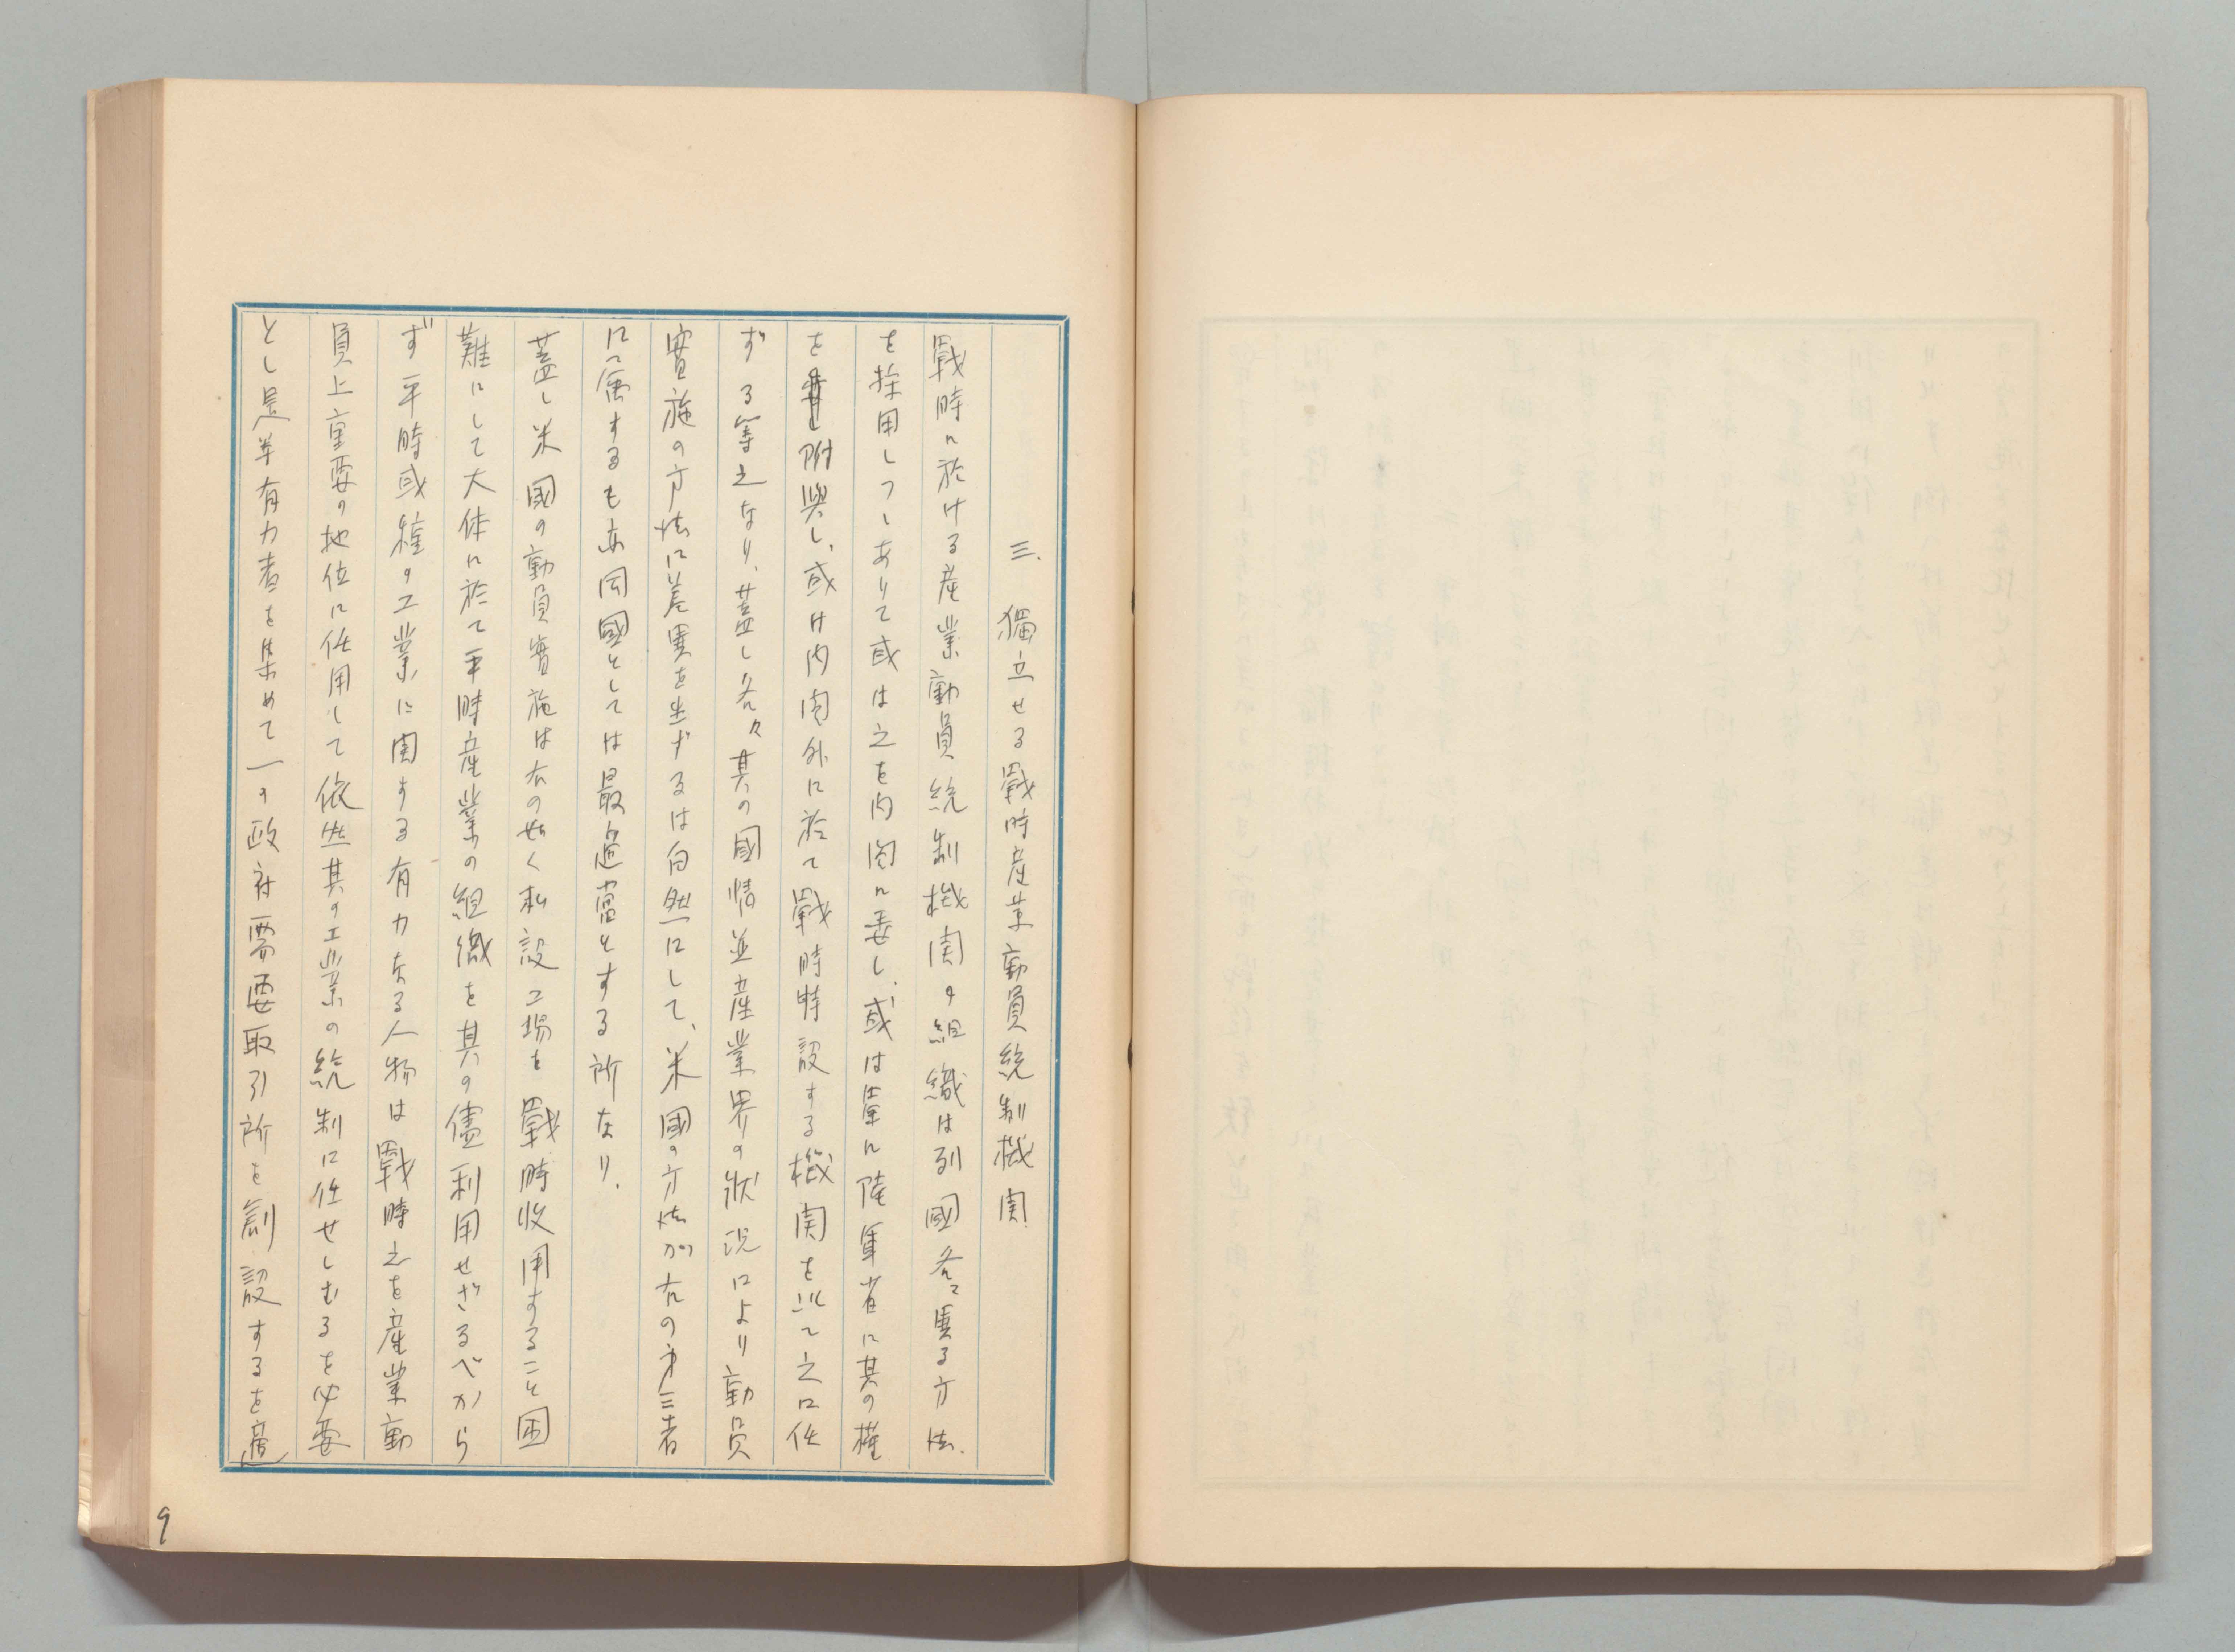 三、獨立せる戰時産業動員統制機関
戰時に於ける産業動員統制機関の組織は列國各々異る方法
を採用しつゝありて或は之を内閣に委し、或は單に陸軍省に其の権
を附與し、或は内閣外に於て戰時特設する機関を以て之に任
ずる等之なり、蓋し各々其の國情並産業界の狀況により動員
實施の方法に差異を生ずるは自然にして、米國の方法が右の第三者
に属するも亦同國としては最適當とする所なり、
蓋し米國の動員實施は右の如く私設工場を戰時收用すること困
難にして大体に於て平時産業の組織を其の儘利用せざるべから
ず平時或種の工業に関する有力なる人物は戰時之を産業動
員上重要の地位に任用して依然其の工業の統制に任せしむるを必要
とし是等有力者を集めて一の政府需要取引所を創設するを適
9